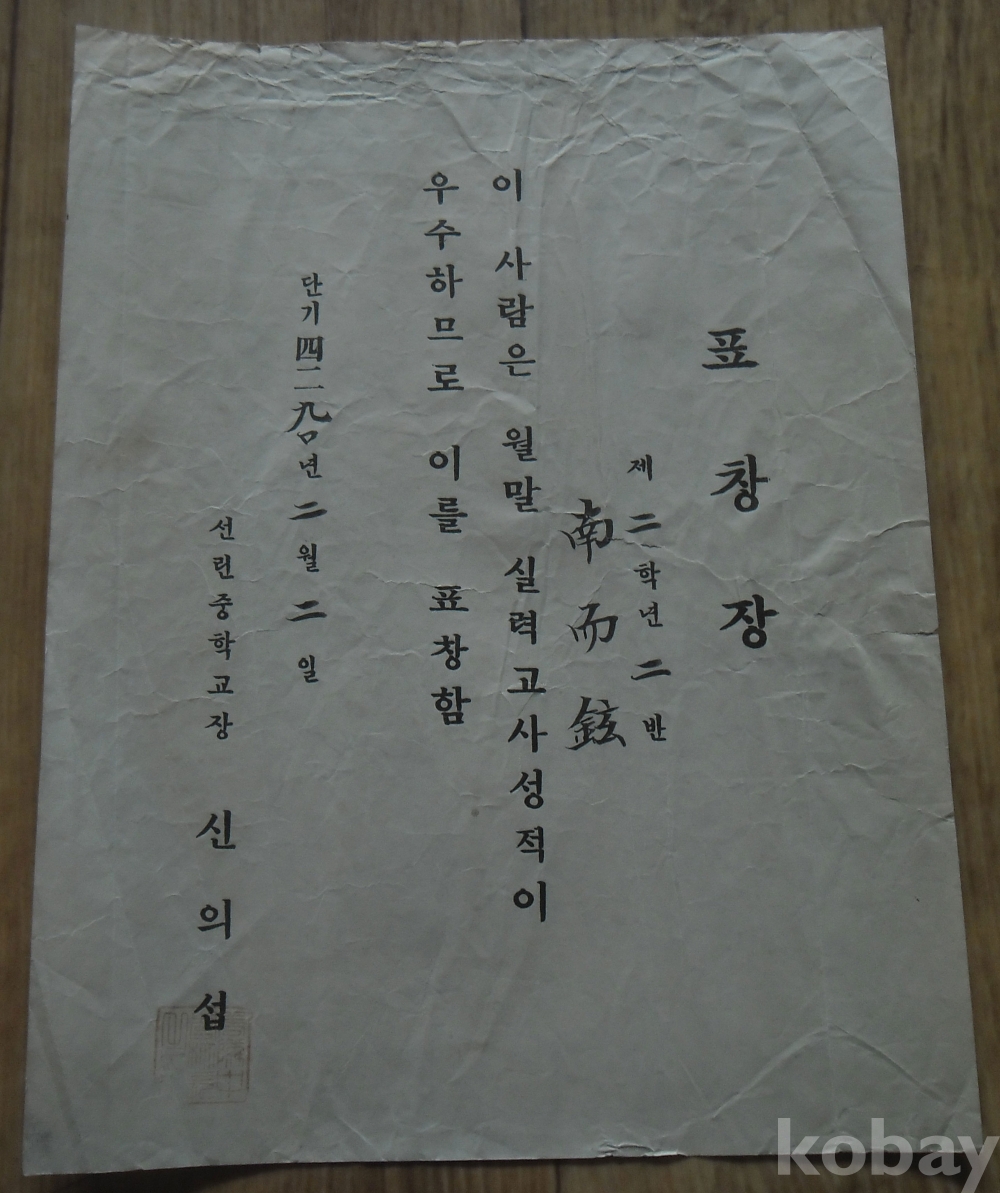 표창장
제二학년二반
南而鉉
이 사람은 월말 실력고사성적이
우수하므로 이를 표창함
단기四二九〇년二월二일
선린중학교장 신의섭
kobay